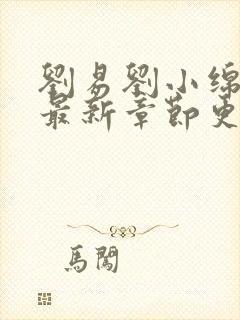 劉易劉小綿
最新章節更
馬闖